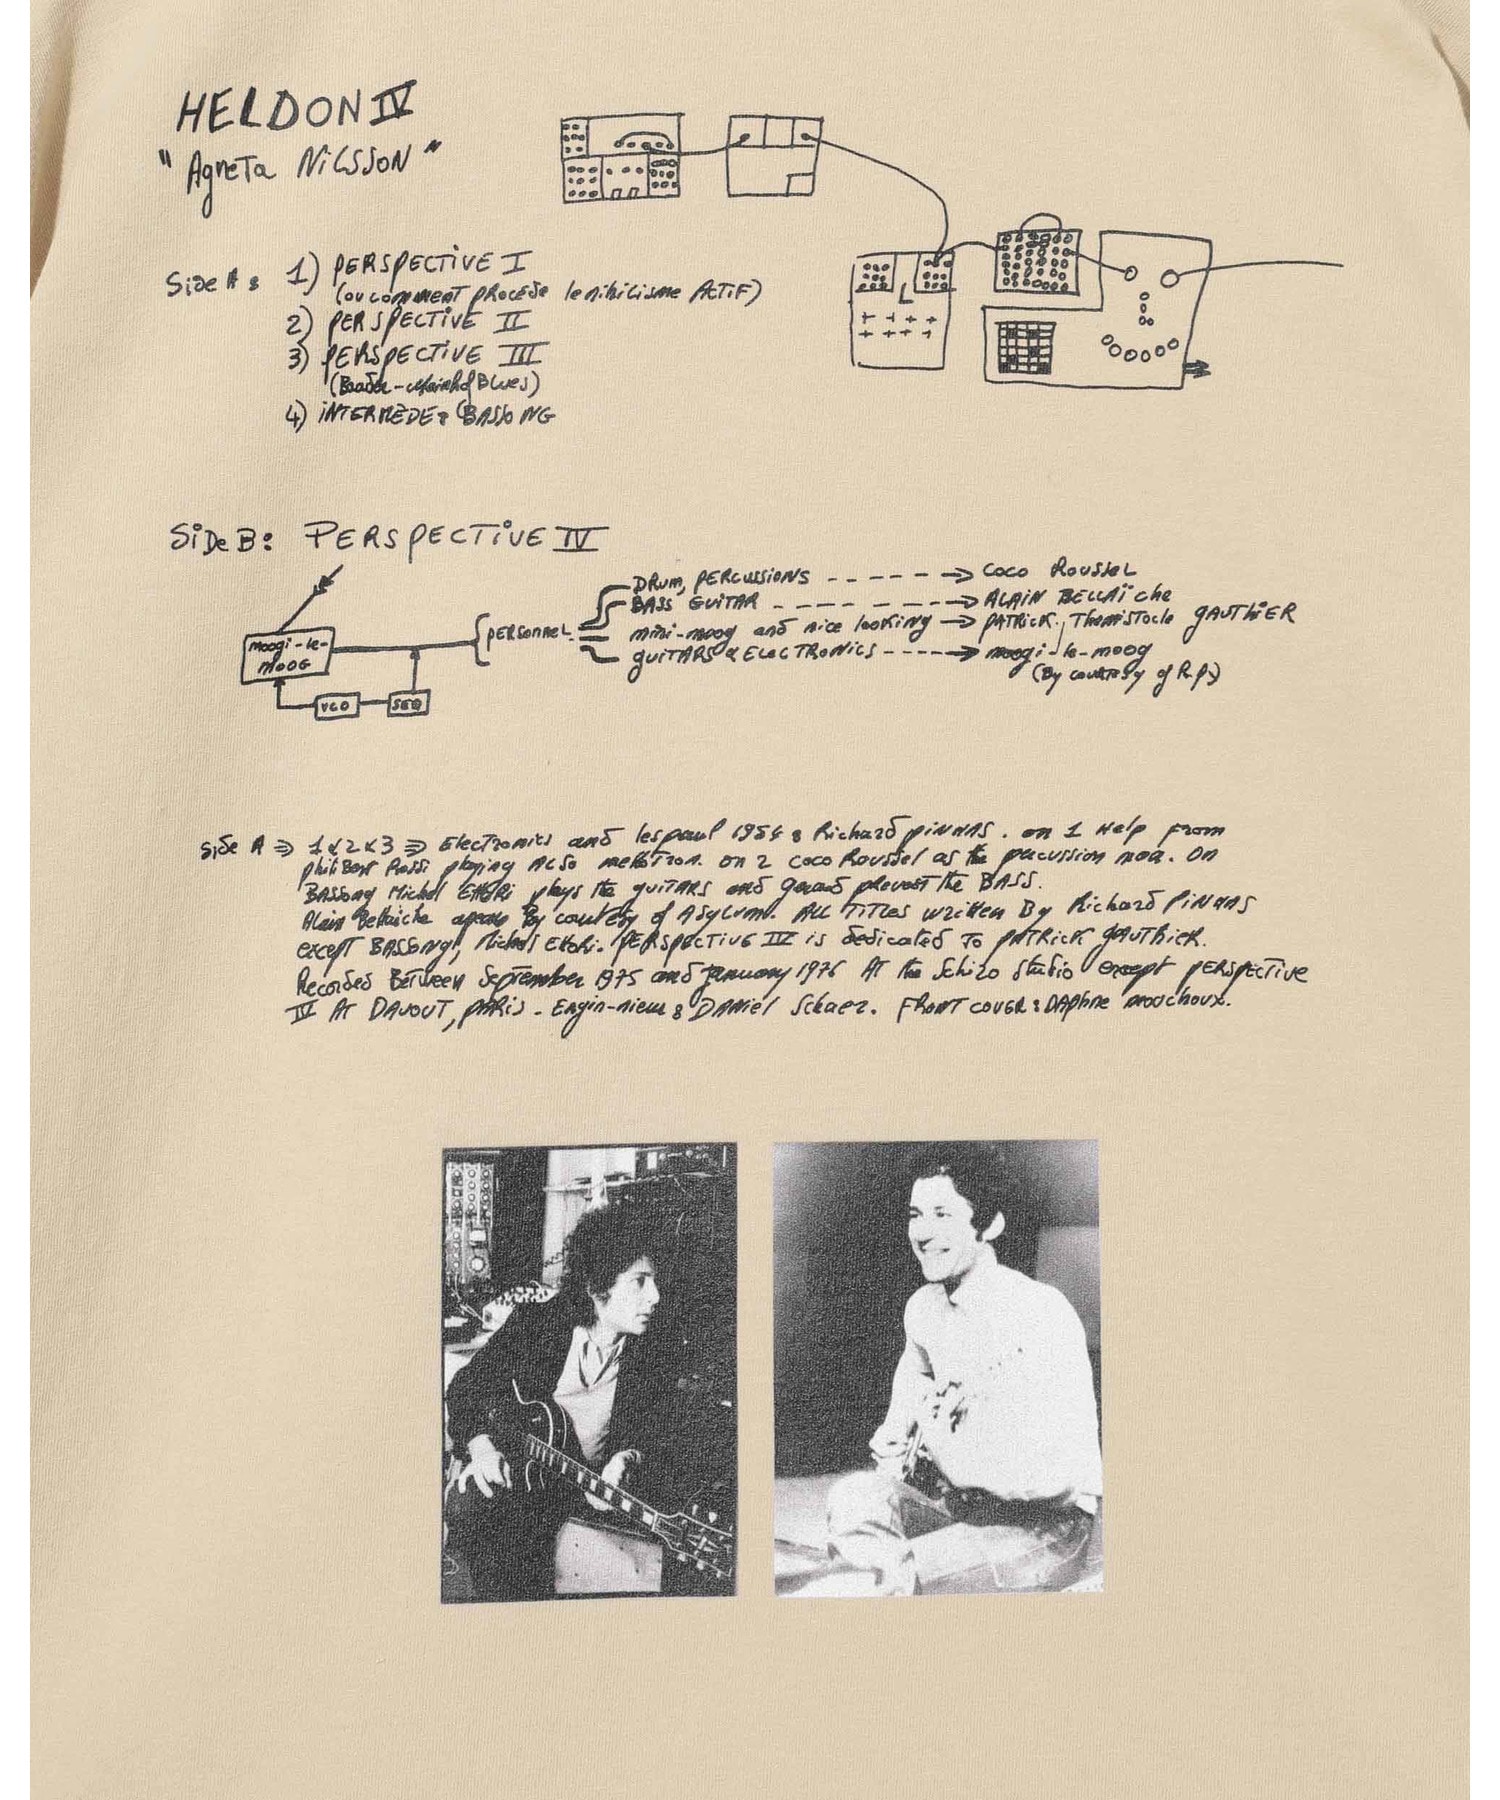 HELDON IV
"Agneta NiLSSON"
Side A : 1) PERSPECTiVE I
(ou comment procède le nihilisme ACTiF)
2) PERSPECTiVE II
3) PERSPECTiVE III
(Baader-Meinhof Blues)
4) iNTERMEDE : BASSONG
SiDe B : PERSPECTiVE IV
moogi-le-
MOOG
VCO
SEQ
PERSONNEL
DRUM, PERCUSSIONS - - - - - -> COCO ROUSSEL
BASS GUiTAR - - - - - -> ALAiN BELLAÏche
mini-moog and nice looking -> PATRICK Themistocle GAUTHiER
guiTARS & ELECTRONiCS - - - - -> moogi-le-moog
(By courtesy of R.P.)
Side A => 1 & 2 & 3 => Electronics and lespaul 1954 : Richard PiNHAS. on 1 Help From
philibert Rossi playing ALSo mellotron. on 2 Coco Roussel as the percussion man. On
BASSong Michel ETTORi plays the guiTARS and Gerard prevost the BASS.
Alain Bellaiche appears By courtesy of Asylum. ALL TiTLes written By Richard PiNHAS
except BASSong, Michel Ettori. PERSPECTiVE III is dedicated To PATRiCK GAUTHiER.
Recorded Between September 1975 and January 1976 AT the Schizo studio except PERSPECTiVE
IV AT DAVOUT, PARis - Engin-nieur : DANiel Schaez. FRONT COVER : DAphne mouchoux.